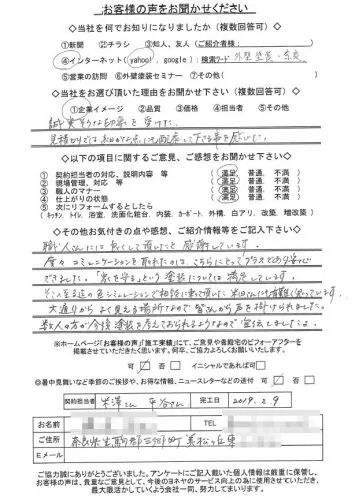 お客様の声をお聞かせください
◇当社を何でお知りになりましたか（複数回答可）◇
①新聞 ②チラシ ③知人、友人（ご紹介者様： ）
④インターネット（yahoo!、google）：検索ワード 外壁塗装・奈良
⑤営業の訪問 ⑥外壁塗装セミナー ⑦その他（ ）
◇当社をお選び頂いた理由をお聞かせ下さい（複数回答可）◇
①企業イメージ ②品質 ③価格 ④担当者 ⑤その他
誠実そうな印象を受けた。
見積りでは細かな点にも配慮して下さる事を感じた。
◇以下の項目に関するご意見、ご感想をお聞かせ下さい◇
① 契約担当者の対応、説明内容 等 （満足、普通、不満）
② 現場管理、対応 等 （満足、普通、不満）
③ 職人のマナー （満足、普通、不満）
④ 仕上がりの状態 （満足、普通、不満）
⑤ 次にリフォームするとしたら
（キッチン、トイレ、浴室、洗面化粧台、内装、カーポート、外構、白アリ、改築、増改築）
◇その他お気付きの点や感想、ご紹介情報等をご記入下さい◇
職人さんには良くして頂いたと感謝しています。
度々コミュニケーションを取れたのは、こちらにとってプラスであり
できました。「家を守る」という塗装については満足しています。
大通りからよく見える場所なので皆さんから声を掛けられました。
数人の方が今後塗装を考えておられるようなので宣伝しましたよ。
※ホームページ「お客様の声」「施工実績」にて、ご意見や貴殿宅のビフォーアフターを
掲載させていただきたく思います。何卒、ご協力よろしくお願いいたします。
可 否 イニシャルであれば可
◎暑中見舞いなど季節のご挨拶や、お得な情報、ニュースレターなどの送付 可 否
契約担当者 米澤さん 平谷さん 完工日 2019.2.9
お名前 TEL
ご住所 奈良県生駒郡三郷町美松ヶ丘東
Eメール
ご協力誠にありがとうございました。アンケートにご記入戴いた個人情報は厳重に保管し、
お客様の声は、貴重なご意見として、今後のヨネヤのサービス向上の為に使用させていただき、
最大限活かしていくよう会社一同、努力してまいります。